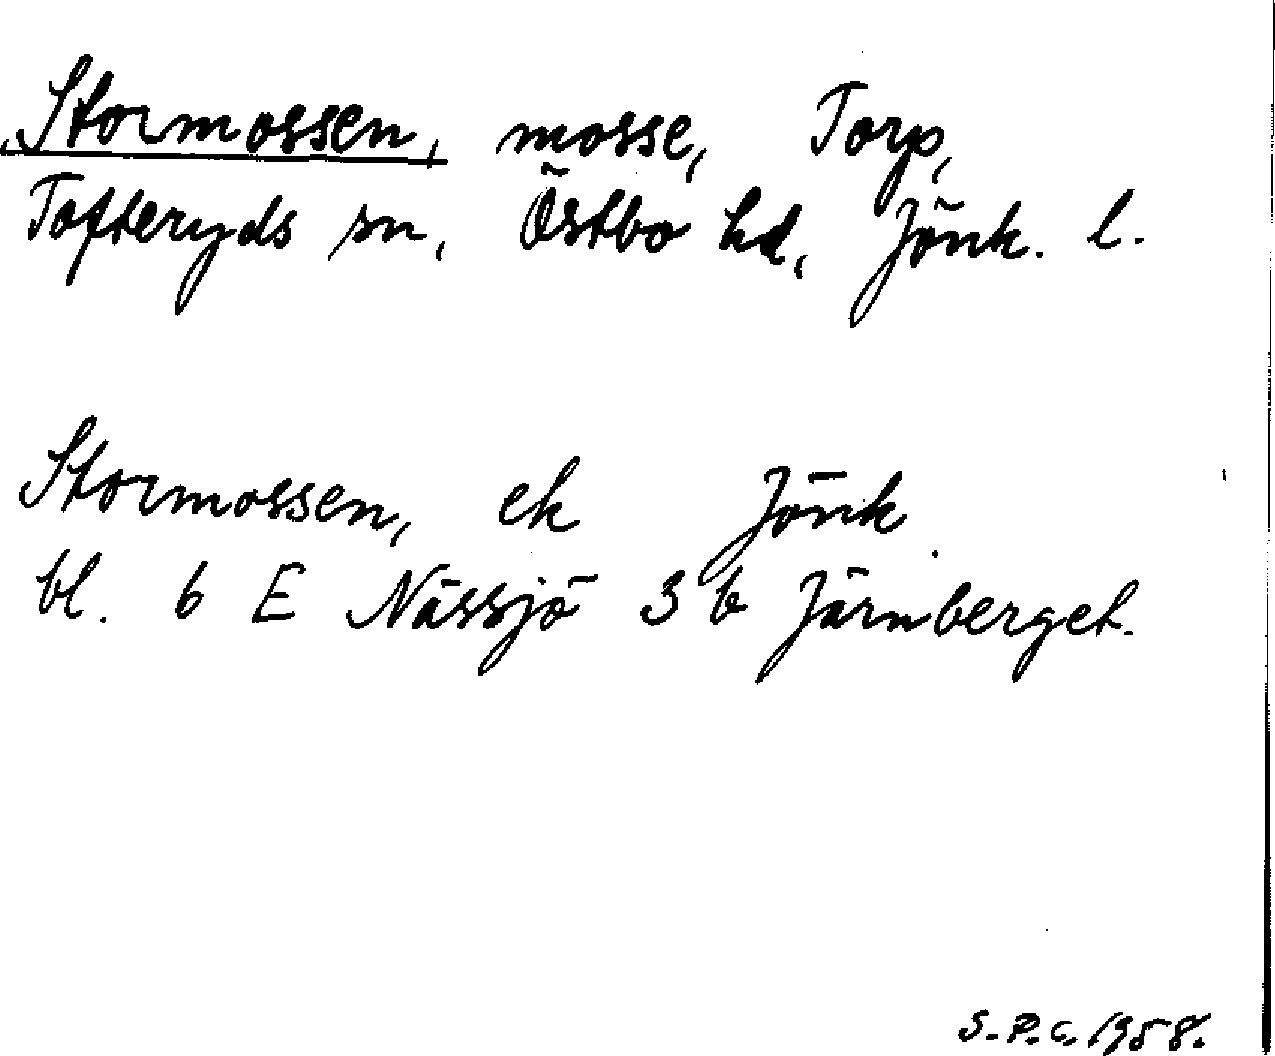 Stormossen, mosse, Torp,
Tofteryds sn, Östbo hd, Jönk. l.
Stormossen, ek Jönk.
bl. 6 E Nässjö 3 b Järnberget.
S.P.C. 1958.